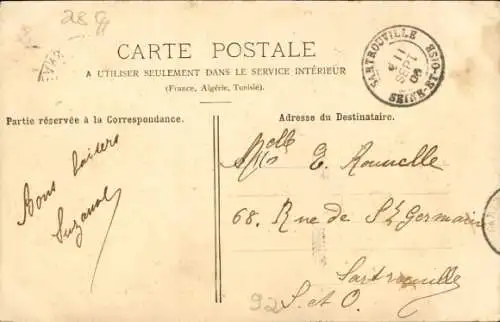 CARTE POSTALE
A UTILISER SEULEMENT DANS LE SERVICE INTÉRIEUR
(France, Algérie, Tunisie).
SARTROUVILLE
11
SEPT
06
SEINE-ET-OISE
Partie réservée à la Correspondance.
Bons baisers
Suzanne
Adresse du Destinataire.
Melle E. Rouvelle
68. Rue de St Germain
Sartrouville
S. et O.
92